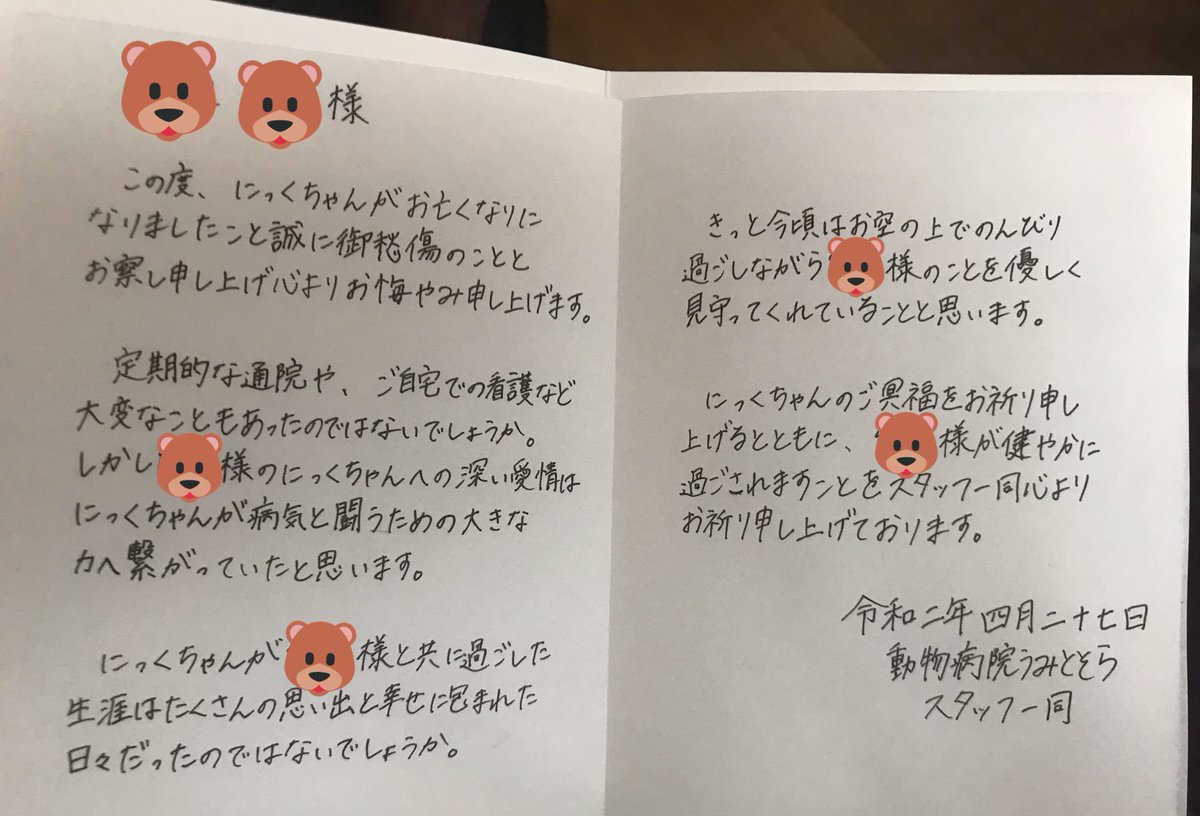 様
この度、にっくちゃんがお亡くなりに
なりましたこと誠に御愁傷のことと
お察し申し上げ心よりお悔やみ申し上げます。
定期的な通院や、ご自宅での看護など
大変なこともあったのではないでしょうか。
しかし様のにっくちゃんへの深い愛情は
にっくちゃんが病気と闘うための大きな
力へ繋がっていたと思います。
にっくちゃんが様と共に過ごした
生涯はたくさんの思い出と幸せに包まれた
日々だったのではないでしょうか。
きっと今頃はお空の上でのんびり
過ごしながら様のことを優しく
見守ってくれていることと思います。
にっくちゃんのご冥福をお祈り申し
上げるとともに、様が健やかに
過ごされますことをスタッフ一同心より
お祈り申し上げております。
令和二年四月二十七日
動物病院うみとそら
スタッフ一同